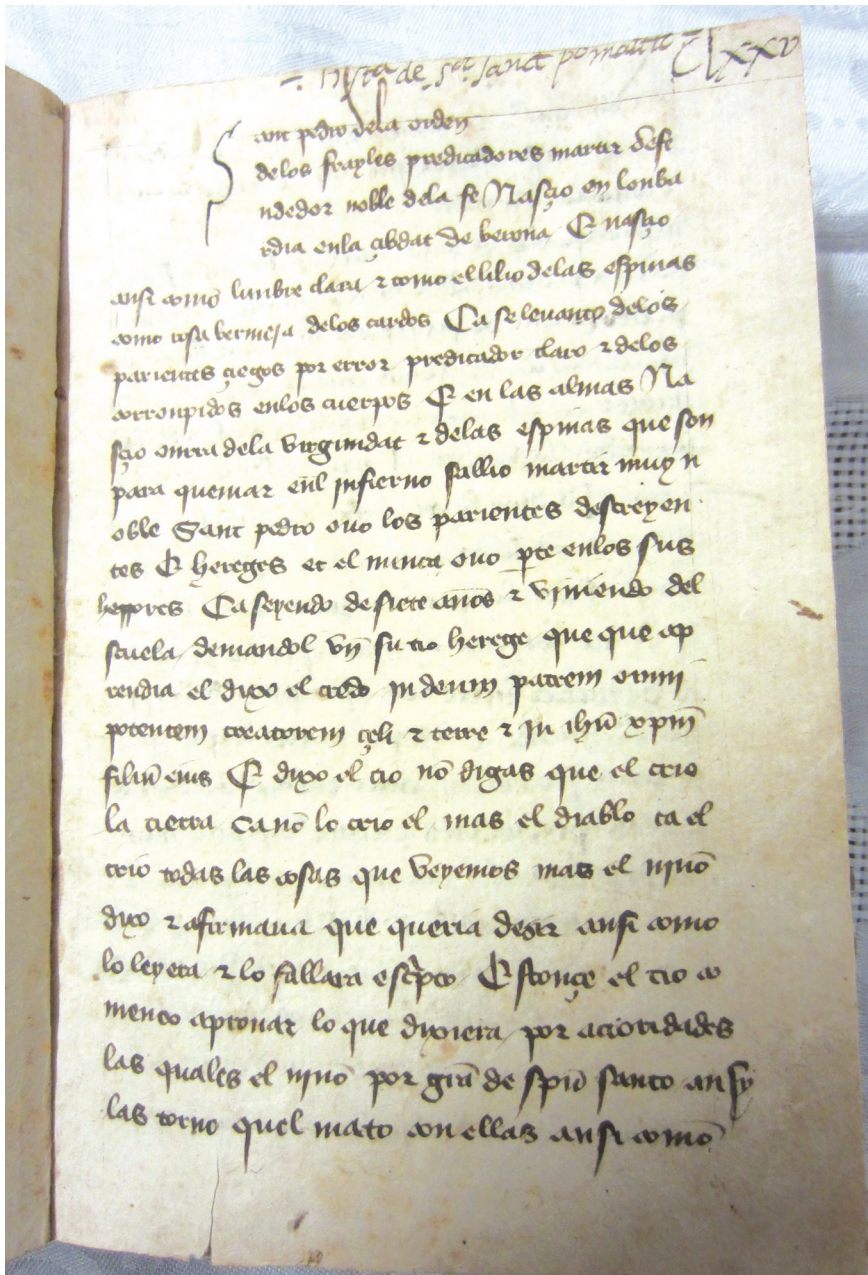 hysta de sta sanct po martir LXXV
Sant pedro dela orden
delos frayles predicadores martir defe
ndedor noble dela fe Nasçio en lonba
rdia enla çibdat de berona E nasçio
ansi como lunbre clara & como el lilio delas espinas
como rosa bermeja delos cardos Ca se leuanto delos
parientes çiegos por error predicador claro & delos
corronpidos enlos cuerpos E en las almas Na
sçio onrra dela virginidat & delas espinas que son
para quemar enl jnfierno sallio martir muy n
oble Sant pedro ouo los parientes descreyen
tes E hereges et el nunca ouo pte enlos sus
herrores Ca seyendo de siete años & viniendo del
scuela demandol vn su tio herege que que ap
rendia el dixo el credo jn deum patrem omni
potentem creatorem çeli & terre & jn ihu xpm
filiu eius E dixo el tio no digas que el crio
la tierra ca no lo crio el mas el diablo ca el
crio todas las cosas que veyemos mas el niño
dixo & afirmaua que queria dezir ansi como
lo leyera & lo fallara escpto Estonçe el tio co
menço aprouar lo que dixiera por actoridades
las quales el niño por gra de spu santo ansy
las torno quel mato con ellas ansi como